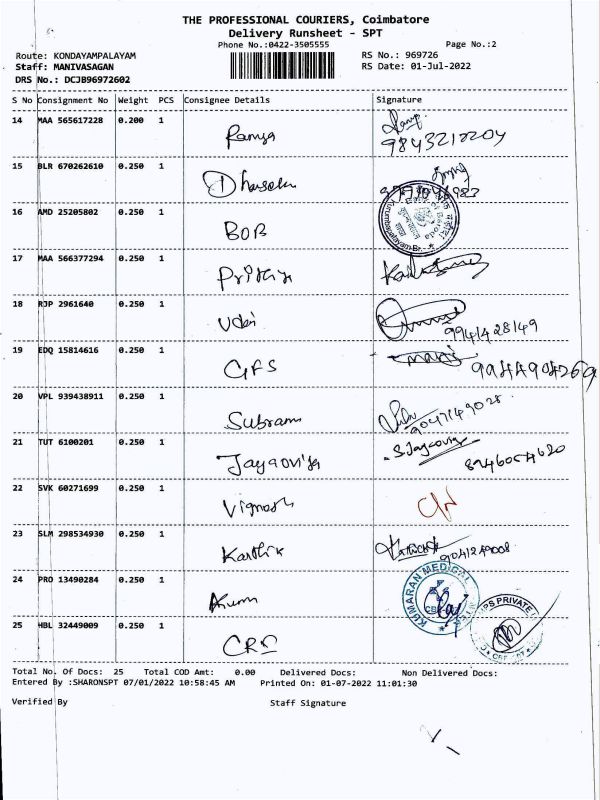 THE PROFESSIONAL COURIERS, Coimbatore
Delivery Runsheet - SPT
Phone No.:0422-3505555 Page No.:2
Route: KONDAYAMPALAYAM RS No.: 969726
Staff: MANIVASAGAN RS Date: 01-Jul-2022
DRS No.: DCJB96972602
S No Consignment No Weight PCS Consignee Details Signature
14 MAA 565617228 0.200 1 Ramya 9843212204
15 BLR 670262610 0.250 1
16 AMD 25205802 0.250 1 BOB
17 MAA 566377294 0.250 1 Priya
18 RJP 2961640 0.250 1 9941428149
19 EDQ 15814616 0.250 1 GFS 9944904269
20 VPL 939438911 0.250 1 Subram 9047149028
21 TUT 6100201 0.250 1
22 SVK 60271699 0.250 1 Vignesh
23 SLM 298534930 0.250 1 Karthik 9041249008
24 PRO 13490284 0.250 1 KUMARAN MEDICAL
25 HBL 32449009 0.250 1 PRIVATE
Total No. Of Docs: 25 Total COD Amt: 0.00 Delivered Docs: Non Delivered Docs:
Entered By :SHARONSPT 07/01/2022 10:58:45 AM Printed On: 01-07-2022 11:01:30
Verified By Staff Signature